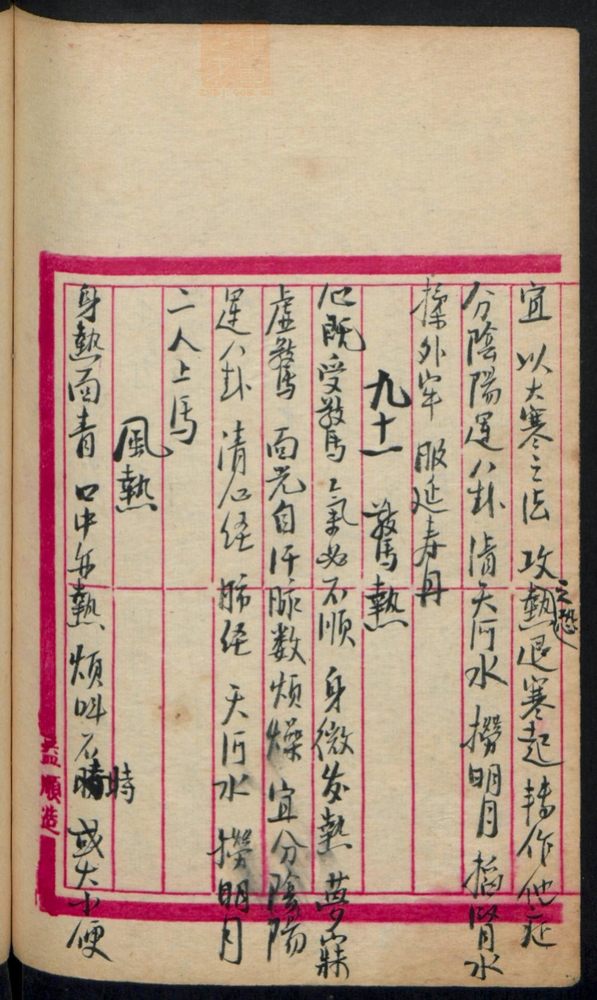 宜以大寒之法攻之恐熱退寒起轉作他症
分陰陽運八卦清天河水撈明月掐腎水
揉外牢服延寿丹
九十一 驚熱
心既受驚氣必不順身微发熱夢寐
虛驚面光自汗脉数煩燥宜分陰陽
運八卦清心经肺经天河水撈明月
二人上馬
風熱
身熱面青口中亦熱煩叫不時或大小便
益順造